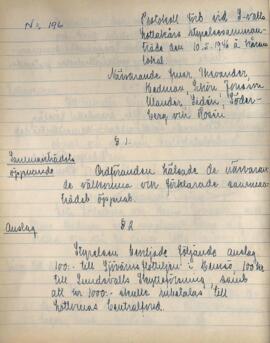 No 196
Protokoll förd vid S-valls
Lottakårs styrelsesamman-
träde den 10.2.1946 å kårens
lokal.
Närvarande fruar
Hedman, Schön, Jonsson
Wander, Lidén, Söder-
berg och Rosén
§ 1.
Sammanträdets
öppnande
Ordföranden hälsade de närvaran-
de välkomna och förklarade samman-
trädet öppnat.
§ 2
Anslag
Styrelsen beviljade följande anslag
100:- till Sjövärns Flottiljen i 100 kr
till Sundsvalls Skytteförening, samt
att kr 1000:- skulle inbetalas till
Lottornas Centralfond.